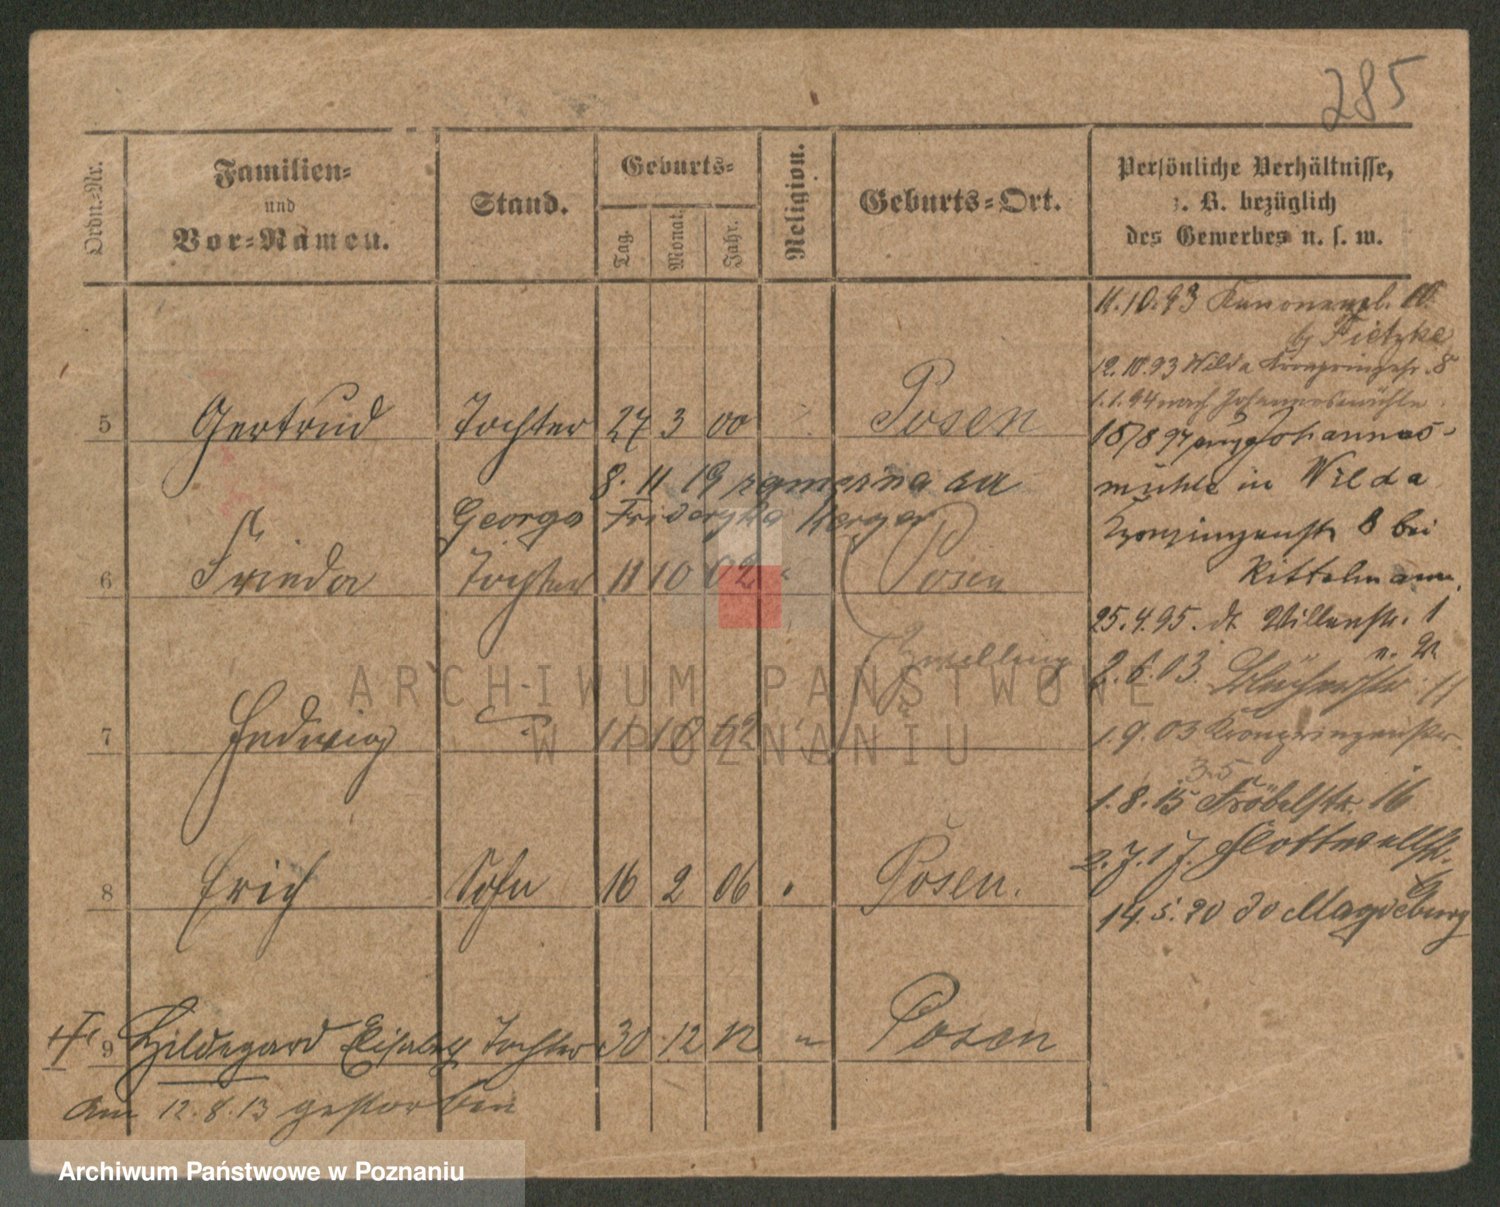 285
Ordn.-Nr.
Familien-
und
Vor-Namen.
Stand.
Geburts-
Tag.
Monat.
Jahr.
Religion.
Geburts-Ort.
Persönliche Verhältnisse,
z. B. bezüglich
des Gewerbes u. s. w.
11.10.93
b/ Fietzke
12.10.93 Wilda Kronprinzstr. 8
1.1.94 nach Johannesmühle
5 Gertrud Tochter 27 3 00 Posen
8. 11 19 zamężna za
Georga Fryderyka Berger
Johannes-
mühle in Wilda
Kronprinzenstr 8 bei
Rittelmann.
6 Frieda Tochter 11 10 02 Posen
25.4.95. dt. Villenstr. 1
Zwilling
2.6.03. Blücherstr. 11
7 Hedwig 11 10 02
1.9.03 Kronprinzenstr.
35
1.8.15 Fröbelstr. 16
2.7.17. Flottwellstr.
8 Erich Sohn 16 2 06 Posen.
14.5.20 do Magdeburg
9 Hildegard Elisabeth Tochter 30 12 12 Posen
Am 12.8.13 gestorben
ARCHIWUM PAŃSTWOWE
W POZNANIU
Archiwum Państwowe w Poznaniu